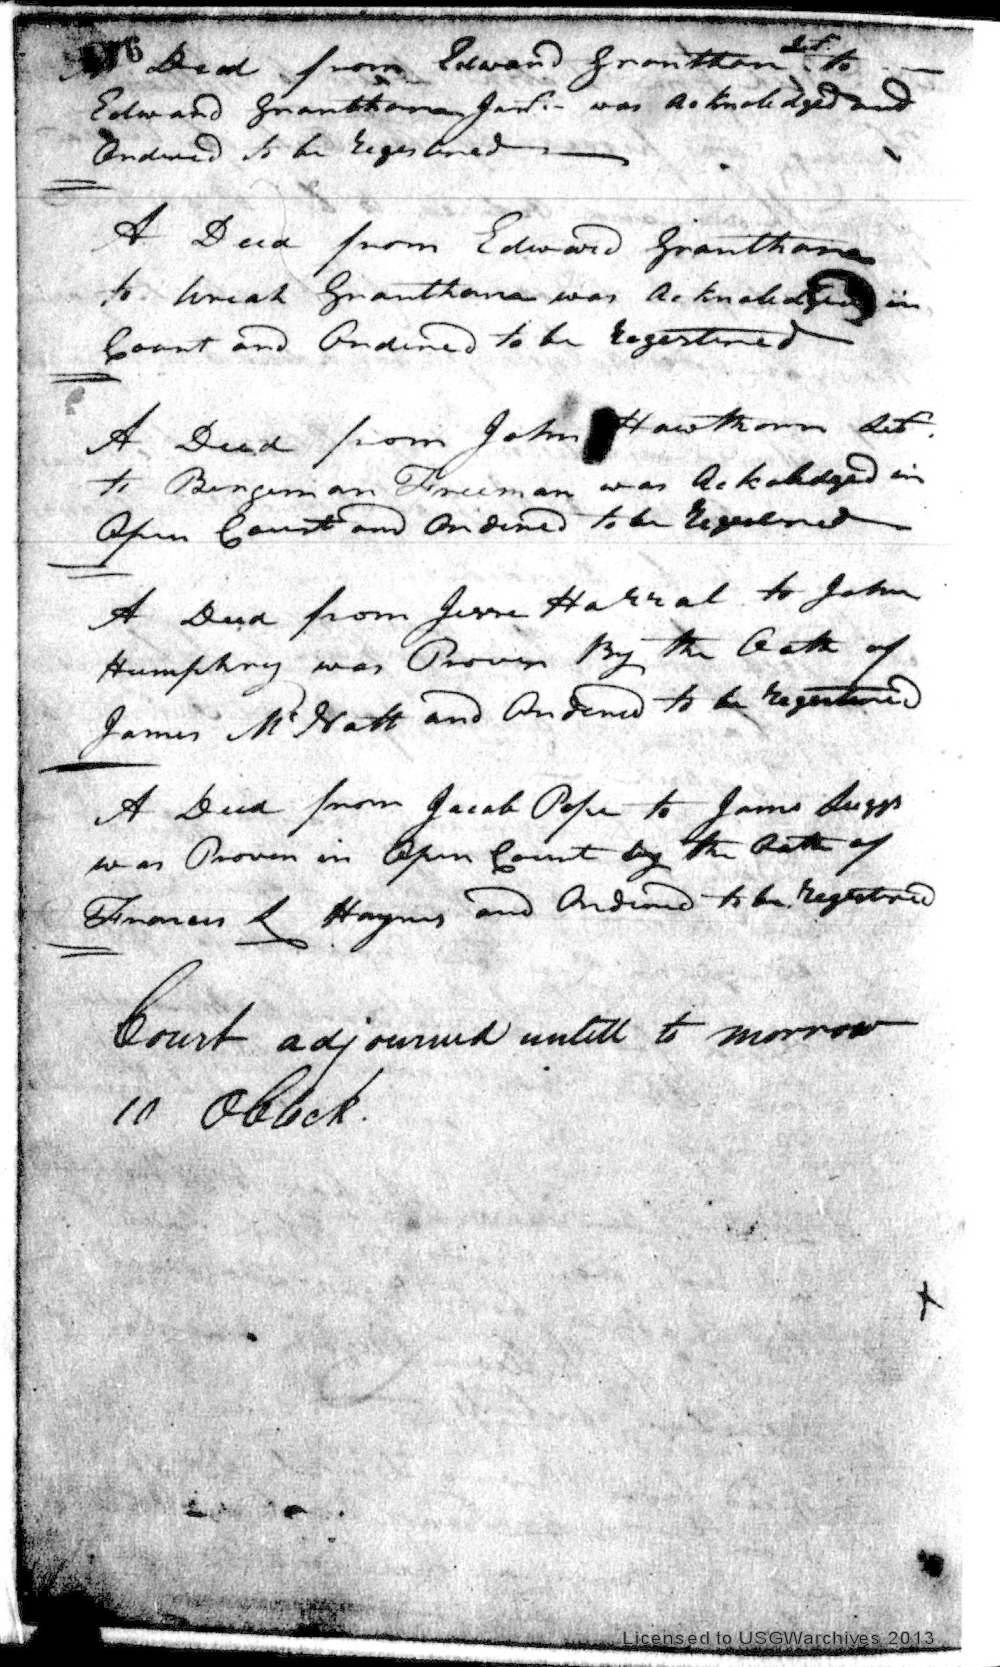 A Deed from Edward Grantham to
Edward Grantham Junr. was Acknoledged and
Ordered to be Regestered
A Deed from Edward Grantham
to Grantham was Acknoledged in
Court and Ordered to be Regestered
A Deed from John Hawthorn
to Bengeman Freeman was Ackoledged in
Open Court and Ordered to be Regestered
A Deed from Jesse Harral to John
Humphrey was Proven By the Oath of
James McNatt and Ordered to be Regestered
A Deed from Jacob Pope to James Suggs
was Proven in Open Court by the Oath of
Frances L Haynes and Ordered to be Regestered
Court adjourned untill to morrow
10 OClock.
Licensed to USGWarchives 2013